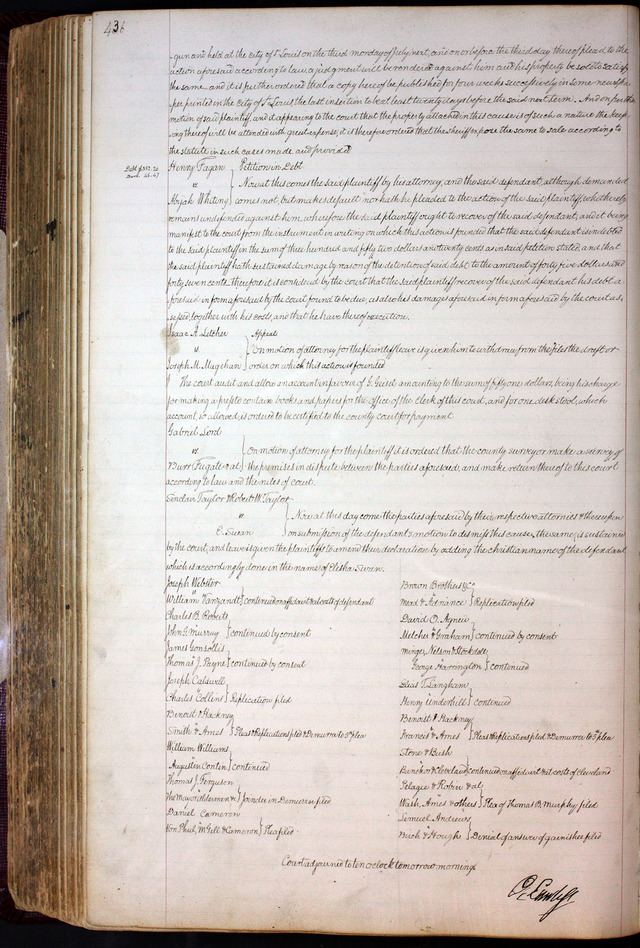 436
gun and held at the city of St Louis on the third monday of July next, and on or before the third day thereof plead to the
action aforesaid according to law, a judgment will be rendered against him and his property be sold to satisfy
the same and it is further ordered that a copy hereof be published for four weeks successively in some newspa
per printed in the city of St Louis the last insertion to be at least twenty days before the said next term. And on further
motion of said plaintiff, and it appearing to the court that the property attached in this cause is of such a nature the keep
ing thereof will be attended with great expense, it is therefore ordered that the sheriff expose the same to sale according to
the statute in such cases made and provided
Debt $352.20
Henry Fagan } Petition in Debt
vs Now at this comes the said plaintiff by his attorney, and the said defendant, although demanded
Abijah Whiting comes not, but makes default nor hath he pleaded to the action of the said plaintiff, which thereby
remains undefended against him, wherefore the said plaintiff ought to recover of the said defendant, and it being
manifest to the court from the instrument in writing on which this action is founded that the said defendant is indebted
to the said plaintiff in the sum of three hundred and fifty two dollars and twenty cents as in said petition stated, and that
the said plaintiff hath sustained damage by reason of the detention of said debt to the amount of forty five dollars and
forty seven cents. Therefore it is considered by the court that the said plaintiff recover of the said defendant his debt a
foresaid in form aforesaid by the court found to be due, as also his damages aforesaid in form aforesaid by the court as,
sessed together with his costs, and that he have thereof execution.
Isaac A. Letcher } Appeal
vs On motion of attorney for the plaintiff leave is given him to withdraw from the files the draft or
Joseph M. Magehan order on which this action is founded
The court audit and allow an account in favour of G. Guisd amounting to the sum of fifty one dollars, being his charge
for making a press to contain books and papers for the office of the clerk of this court, and for one desk stool, which
account, so allowed is ordered to be certified to the county court for payment.
Gabriel Lord
vs } On motion of attorney for the plaintiff it is ordered that the county surveyor make a survey of
Burr Fugate & al the premises in dispute between the parties aforesaid, and make return thereof to this court
according to law and the rules of court.
Sinclair Taylor & Robert W. Taylor
vs } Now at this day come the parties aforesaid by their respective attornies & thereupon
E. Swan on submission of the defendants motion to dismiss this cause, the same is sustained
by the court, and leave is given the plaintiffs to amend their declaration by adding the christian name of the defendant
which is accordingly done in the name of Elisha Swan.
Joseph Webster
William Vanzandt } continued on affidavit & at costs of defendant
Charles B. Roberts
John G. Murray } continued by consent
James Gonsollis
Thomas J. Payne } continued by consent
Joseph Caldwell
Charles Collins } Replication filed
Benoist & Hackney
Smith & Ames } Pleas & Replications filed & Demurrer to 3d plea
William Williams
Augustin Contin } continued
Thomas J. Ferguson
The Mayor Aldermen &c } Joinder in Demurrer filed
Daniel Cameron
Von Phul, McGill & Cameron } Plea filed
Braun Brothers & Co
Mead & Adriance } Replication filed
David O. Agnew
Melcher & Graham } continued by consent
Menges Nelson & Stockdale
George Harrington } continued
Elias T. Langham
Henry Underhill } continued
Benoist & Hackney
Francis & Ames } Pleas & Replications filed & Demurrer to 3d plea
Stone & Bush
Bunchor & Cleveland } continued on affidavit & at costs of Cleveland
Pelagie & Robin & al
Wash, Ames & others } Plea of Thomas B. Murphy filed
Samuel Andrews
Buck & Hough } Denial of answer of garnishee filed
Court adjourned to ten o'clock tomorrow morning